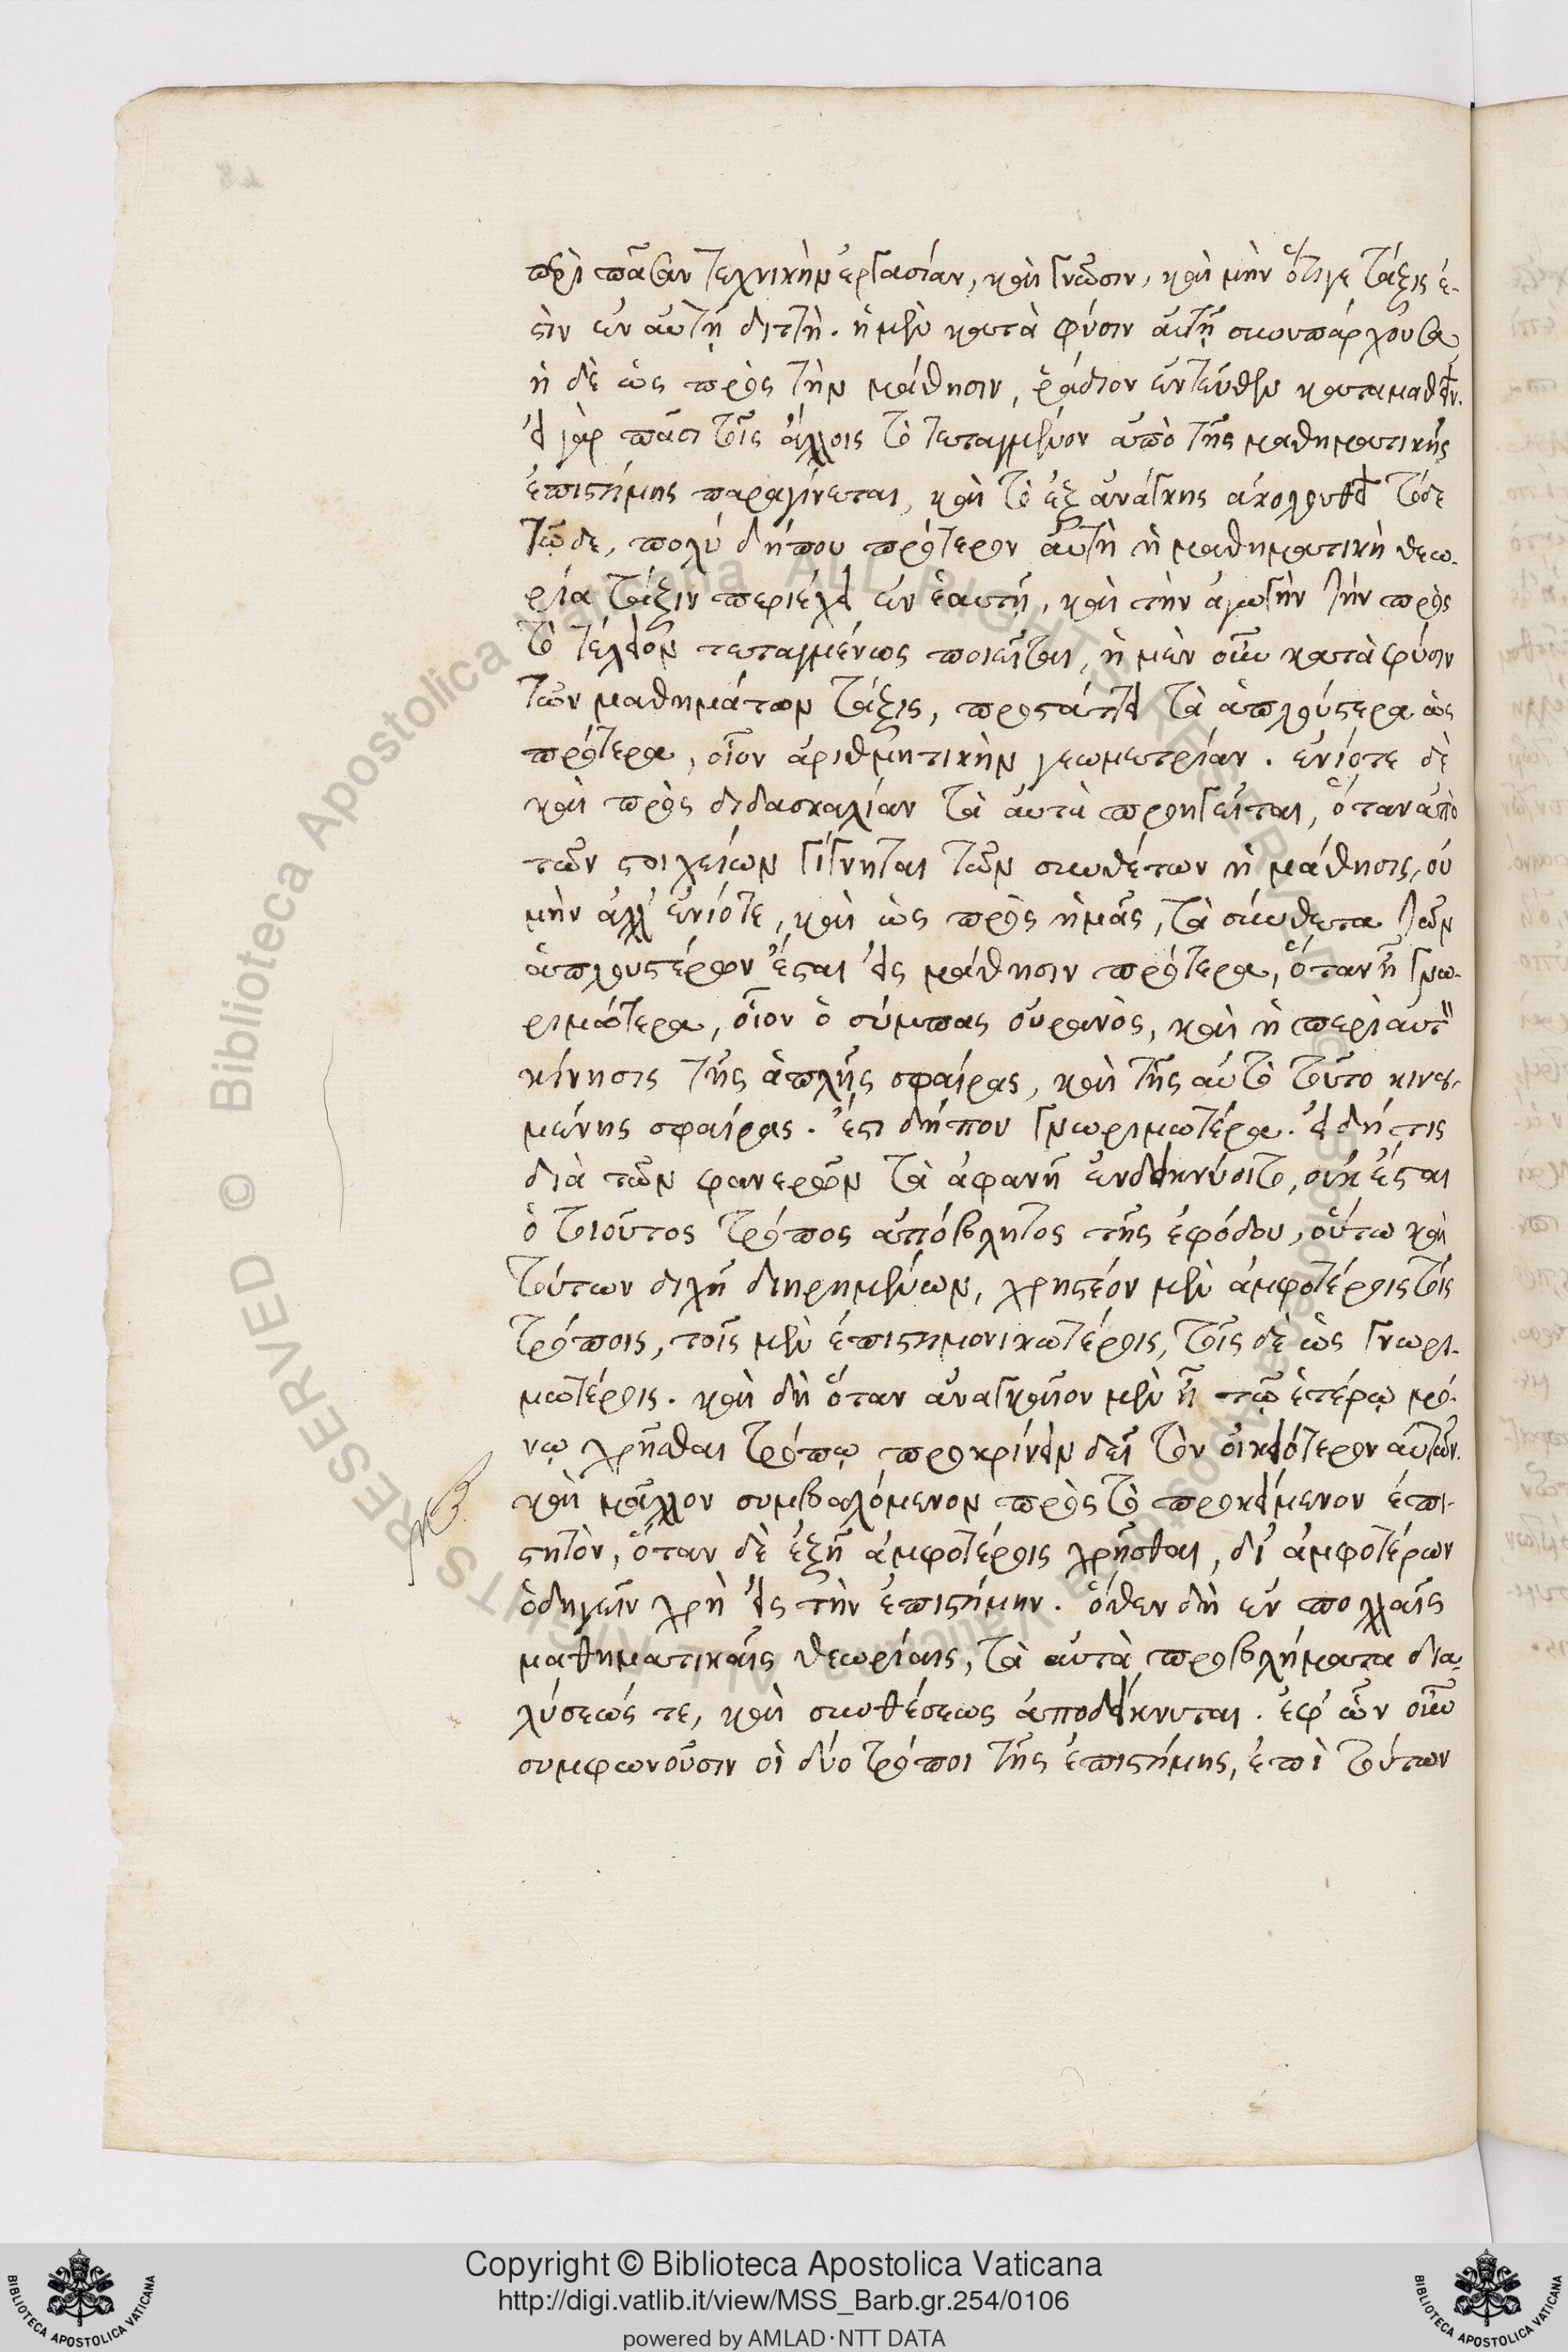 περὶ πᾶσαν τεχνικὴν ἐργασίαν, καὶ γνῶσιν, καὶ μὴν ὅτι γε τάξις ἐ-
στὶν ἐν αὐτῇ διττὴ. ἡ μὲν κατὰ φύσιν αὐτῇ συνυπάρχουσα,
ἡ δὲ ὡς πρὸς τὴν μάθησιν, ῥάδιον ἐντεύθεν καταμαθεῖν.
εἰ γὰρ πᾶσι τοῖς ἄλλοις τὸ τεταγμένον ἀπὸ τῆς μαθηματικῆς
ἐπιστήμης παραγίνεται, καὶ τὸ ἐξ ἀνάγκης ἀκολουθεῖ τόδε
τῷδε, πολύ δήπου πρότερον αὐτὴ ἡ μαθηματικὴ θεω-
ρία τάξιν περιέχει ἐν ἑαυτῇ, καὶ τὴν ἀγωγὴν τὴν πρὸς
τὸ τέλειον τεταγμένως ποιεῖται, ἡ μὲν οὖν κατὰ φύσιν
τῶν μαθημάτων τάξις, προστάττει τὰ ἁπλούστερα ὡς
πρότερα, οἷον ἀριθμητικὴν γεωμετρίαν. ἐνίοτε δὲ
καὶ πρὸς διδασκαλίαν τὰ αὐτὰ προηγεῖται, ὅταν ἀπὸ
τῶν στοιχείων γίγνηται τῶν συνθέτων ἡ μάθησις, οὐ
μὴν ἀλλ' ἐνίοτε, καὶ ὡς πρὸς ἡμᾶς, τὰ σύνθετα τῶν
ἁπλουστέρων ἔσται εἰς μάθησιν πρότερα, ὅταν ᾖ γνω-
ριμώτερα, οἷον ὁ σύμπας οὐρανὸς, καὶ ἡ περὶ αὐτὸν
κίνησις τῆς ἁπλῆς σφαίρας, καὶ τῆς αὐτὸ τοῦτο κινου-
μένης σφαίρας. ἐστι δήπου γνωριμωτέρα. εἰ δή τις
διὰ τῶν φανερῶν τὰ ἀφανῆ ἐνδεικνύοιτο, οὐκ ἔσται
ὁ τοιοῦτος τρόπος ἀπόβλητος τῆς ἐφόδου, οὕτω καὶ
τούτων διχῆ διῃρημένων, χρηστέον μὲν ἀμφοτέροις τοῖς
τρόποις, τοῖς μὲν ἐπιστημονικωτέροις, τοῖς δὲ ὡς γνωρι-
μωτέροις. καὶ δὴ ὅταν ἀναγκαῖον μὲν ᾖ τῷ ἑτέρῳ μό-
νῳ χρῆσθαι τρόπῳ προκρίνειν δεῖ τὸν οἰκειότερον αὐτῶν.
καὶ μᾶλλον συμβαλόμενον πρὸς τὸ προκείμενον ἐπι-
στητὸν, ὅταν δὲ ἐξῇ ἀμφοτέροις χρῆσθαι, δι' ἀμφοτέρων
ὁδηγεῖν χρὴ εἰς τὴν ἐπιστήμην. ὅθεν δὴ ἐν πολλαῖς
μαθηματικαῖς θεωρίαις, τὰ αὐτὰ προβλήματα δια-
λύσεώς τε, καὶ συνθέσεως ἀποδείκνυται. ἐφ' ὧν οὖν
συμφωνοῦσιν οἱ δύο τρόποι τῆς ἐπιστήμης, ἐπὶ τούτων
Copyright © Biblioteca Apostolica Vaticana
http://digi.vatlib.it/view/MSS_Barb.gr.254/0106
powered by AMLAD·NTT DATA